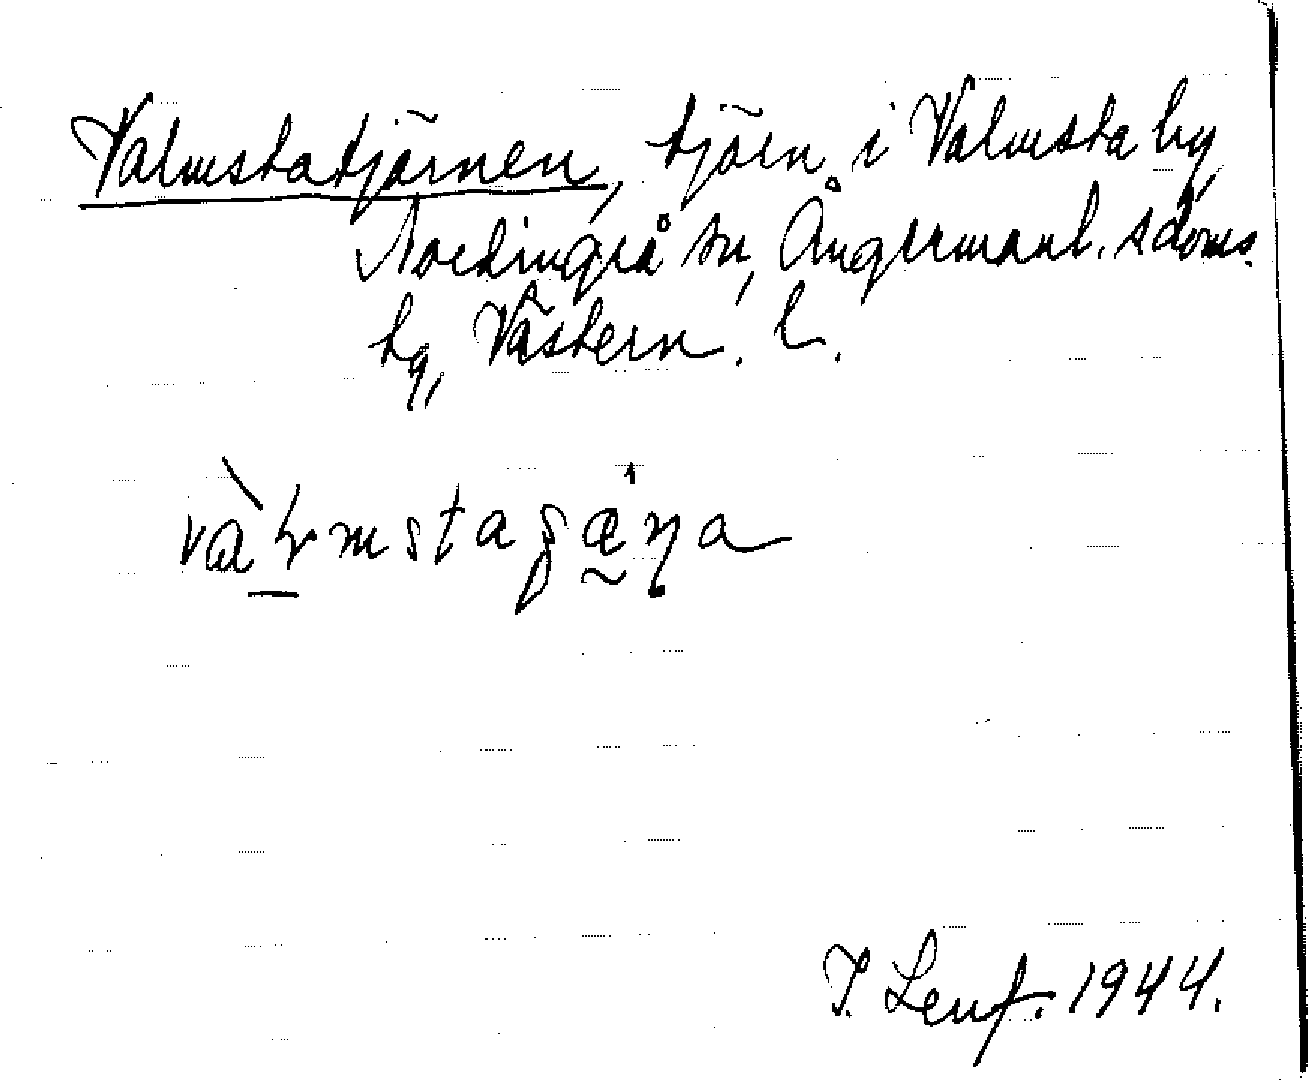 Valmstatjärnen, tjärn i Valmsta by,
Nordingrå sn, Ångermanl. s doms.
tg, Västern. l.
I. Leuf. 1944.